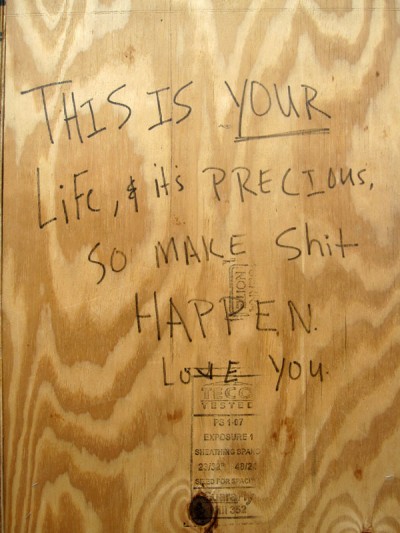 THIS IS YOUR
LiFe, & it's PRECIOUS,
SO MAKE Shit
HAPPEN.
LOVE YOU.
TECO
TESTED
PS 1-07
EXPOSURE 1
SHEATHING SPAN
23/32" 48/24
SIZED FOR SPACING
352